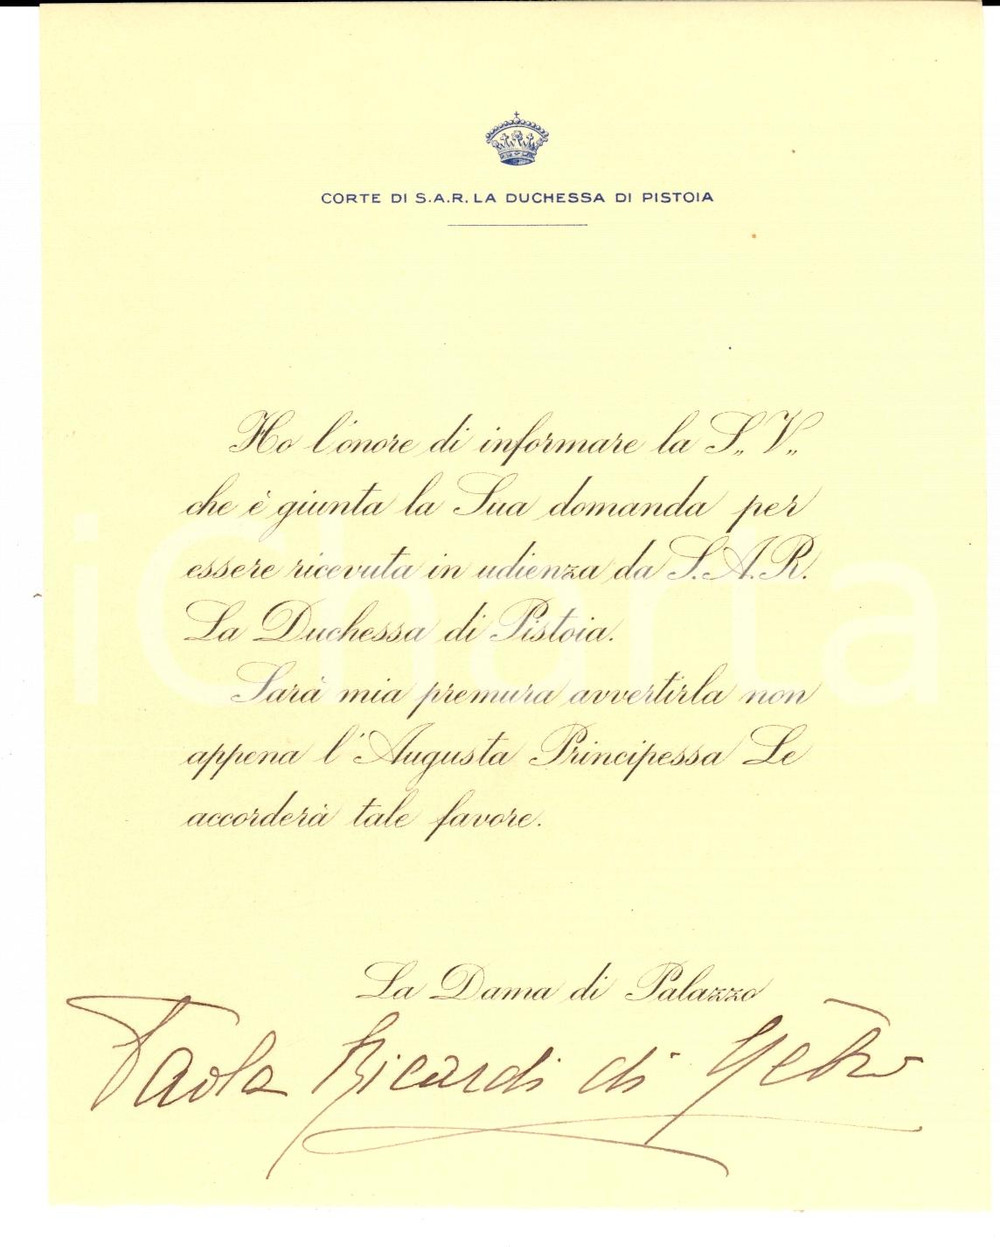 CORTE DI S.A.R. LA DUCHESSA DI PISTOIA
Ho l'onore di informare la S„ V„
che è giunta la Sua domanda per
essere ricevuta in udienza da S.A.R.
La Duchessa di Pistoia.
Sarà mia premura avvertirla non
appena l'Augusta Principessa Le
accorderà tale favore.
La Dama di Palazzo
Paola Ricardi di Netro
iCharta